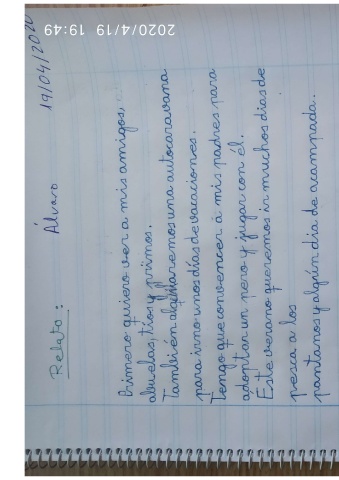 2020/4/19 19:49
Relato: Álvaro 19/04/2020
Primero quiero ver a mis amigos,
abuelas, tios y primos.
También alquilaremos una autocaravana
para irno unos días de vacaciones.
Tengo que convencer a mis padres para
adoptar un pero y jugar con él.
Éste verano queremos ir muchos dias de
pesca a los
pantanos y algún dia de acampada.